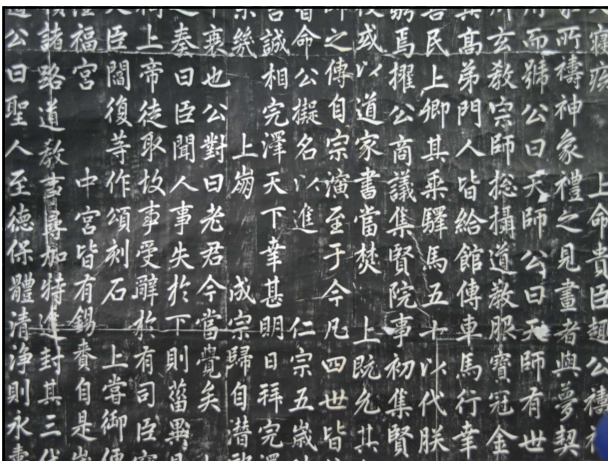 寢疾 上命貴臣趣公禱
所禱神象禮之見畫者與夢契
而號公曰天師公曰天師有世
玄教宗師揔攝道教服寶冠金
其高弟門人皆給館傳車馬行幸
民上卿其乘驛馬五十以代朕
焉擢公商議集賢院事初集賢
或以道家書當焚 上既允其
之傳自宗演至于今凡四世皆
命公擬名以進 仁宗五歲
誠相完澤天下幸甚明日拜完澤
幾 上崩 成宗歸自潛
裏也公對曰老君今當覺矣
奏曰臣聞人事失於下則菑異
上帝徒取故事受辭於有司臣
臣閻復等作頌刻石 上嘗御
福宮 中宮皆有錫賚自是
諸路道教事尋加特進封其三代
公曰聖人至德保體清净則永